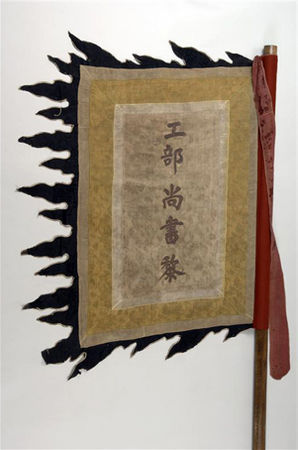 工部尚書黎